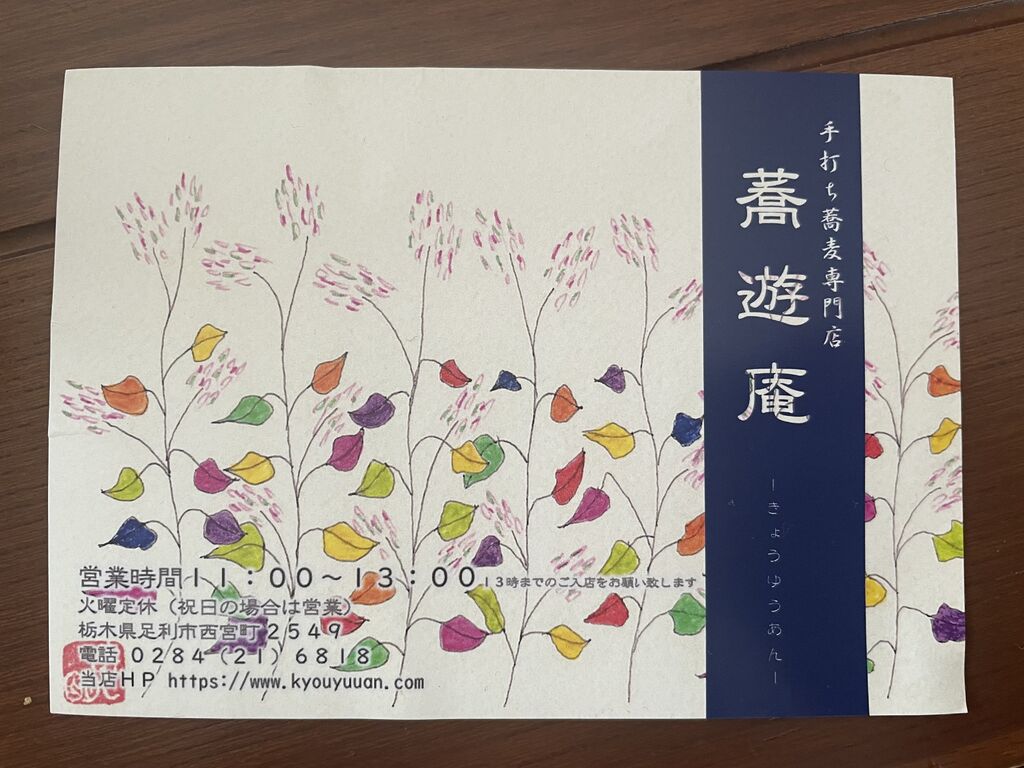 手打ち蕎麦専門店
蕎遊庵
－きょうゆうあん－
営業時間１１：００～１３：００１３時までのご入店をお願い致します
火曜定休（祝日の場合は営業）
栃木県足利市西宮町２５４９
電話 ０２８４－（２１）６８１８
当店ＨＰ https://www.kyouyuuan.com